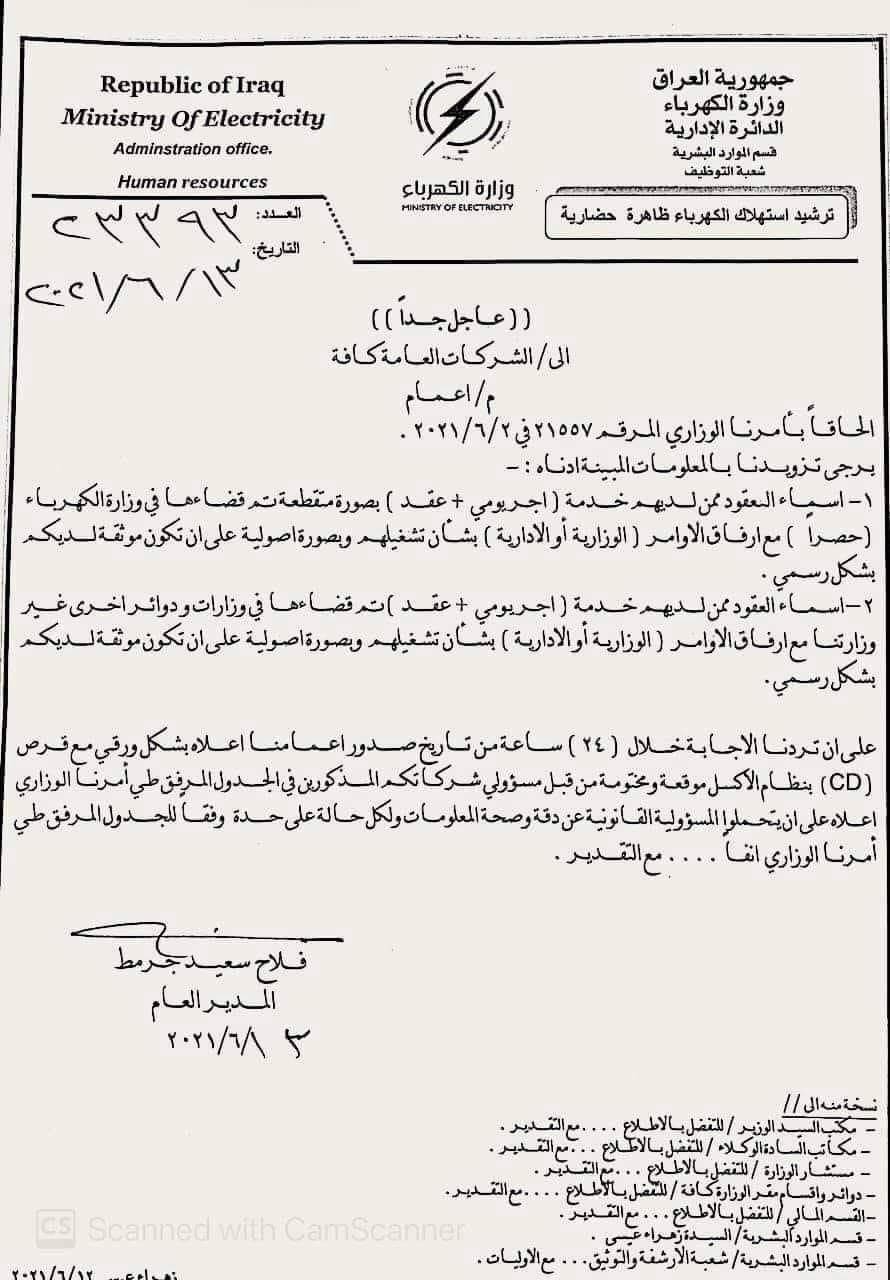 Republic of Iraq
Ministry Of Electricity
Adminstration office.
Human resources
وزارة الكهرباء
MINISTRY OF ELECTRICITY
جمهورية العراق
وزارة الكهرباء
الدائرة الإدارية
قسم الموارد البشرية
شعبة التوظيف
ترشيد استهلاك الكهرباء ظاهرة حضارية
العدد: ٢٣٣٩٣
التاريخ:
٢٠٢١/٦/١٣
((عاجل جداً))
الى/ الشركات العامة كافة
م/ اعمام
الحاقاً بأمرنا الوزاري المرقم ٢١٥٥٧ في ٢٠٢١/٦/٢ .
يرجى تزويدنا بالمعلومات المبينة ادناه :-
١- اسماء العقود ممن لديهم خدمة ( اجر يومي + عقد ) بصورة متقطعة تم قضاءها في وزارة الكهرباء
(حصراً ) مع ارفاق الاوامر ( الوزارية أو الادارية ) بشأن تشغيلهم وبصورة اصولية على ان تكون موثقة لديكم
بشكل رسمي .
٢- اسماء العقود ممن لديهم خدمة ( اجر يومي + عقد ) تم قضاءها في وزارات ودوائر اخرى غير
وزارتنا مع ارفاق الاوامر ( الوزارية أو الادارية ) بشأن تشغيلهم وبصورة اصولية على ان تكون موثقة لديكم
بشكل رسمي .
على ان تردنا الاجابة خلال (٢٤) ساعة من تاريخ صدور اعمامنا اعلاه بشكل ورقي مع قرص
(CD) بنظام الاكسل موقعة ومختومة من قبل مسؤولي شركاتكم المذكورين في الجدول المرفق طي أمرنا الوزاري
اعلاه على ان يتحملوا المسؤولية القانونية عن دقة وصحة المعلومات ولكل حالة على حدة وفقاً للجدول المرفق طي
أمرنا الوزاري انفاً .... مع التقدير .
فلاح سعيد جرمط
المدير العام
٢٠٢١/٦/١٣
نسخة منه الى //
- مكتب السيد الوزير / للتفضل بالاطلاع .... مع التقدير .
- مكاتب السادة الوكلاء / للتفضل بالاطلاع ... مع التقدير .
- مستشار الوزارة / للتفضل بالاطلاع ... مع التقدير .
- دوائر واقسام مقر الوزارة كافة / للتفضل بالاطلاع .... مع التقدير .
- القسم المالي / للتفضل بالاطلاع ... مع التقدير .
- قسم الموارد البشرية / السيدة زهراء عيسى .
- قسم الموارد البشرية / شعبة الارشفة والتوثيق ... مع الاوليات .
زهراء عيسى ٢٠٢١/٦/١٢
CS Scanned with CamScanner